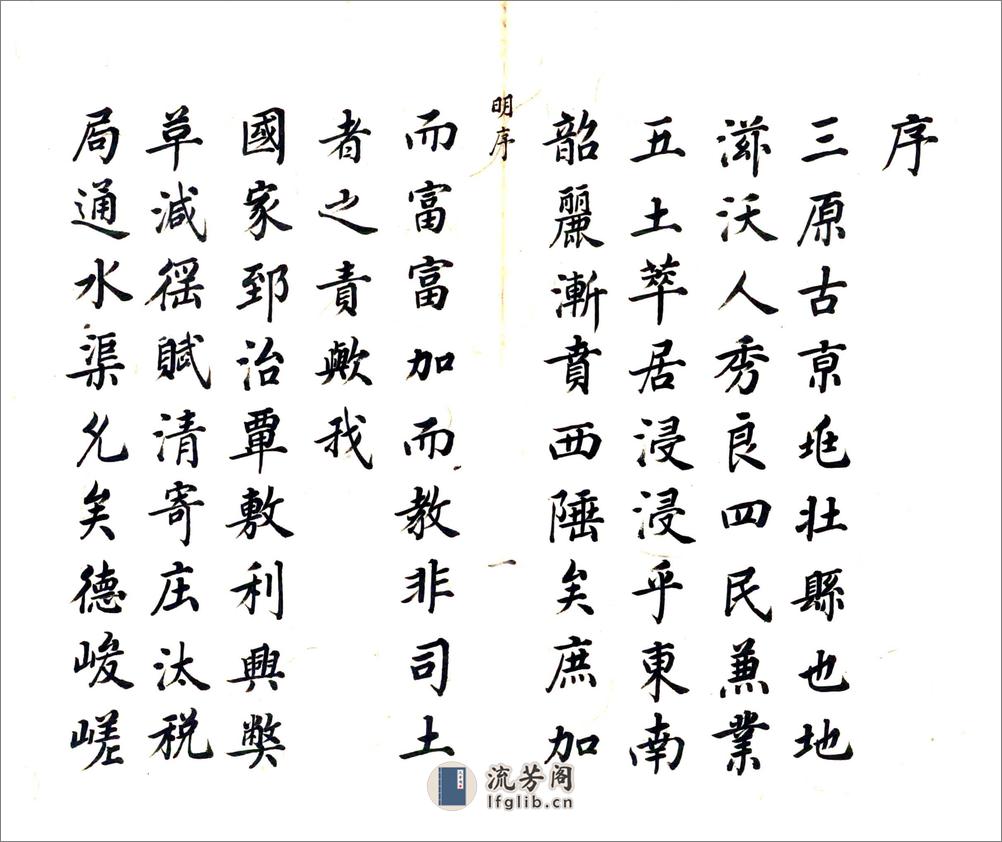 序
三原古京垗壯縣也地
滋沃人秀良四民蕙業
五土萃居浸浸乎東南
韶麗漸賁西陲矣庶加
明序
一
而富富加而教非司土
者之責歟我
國家郅治覃敷利興獘
草減徭賦清寄庄汰税
局通水渠允矣德峻嵯
流芳阁
lfglib.cn